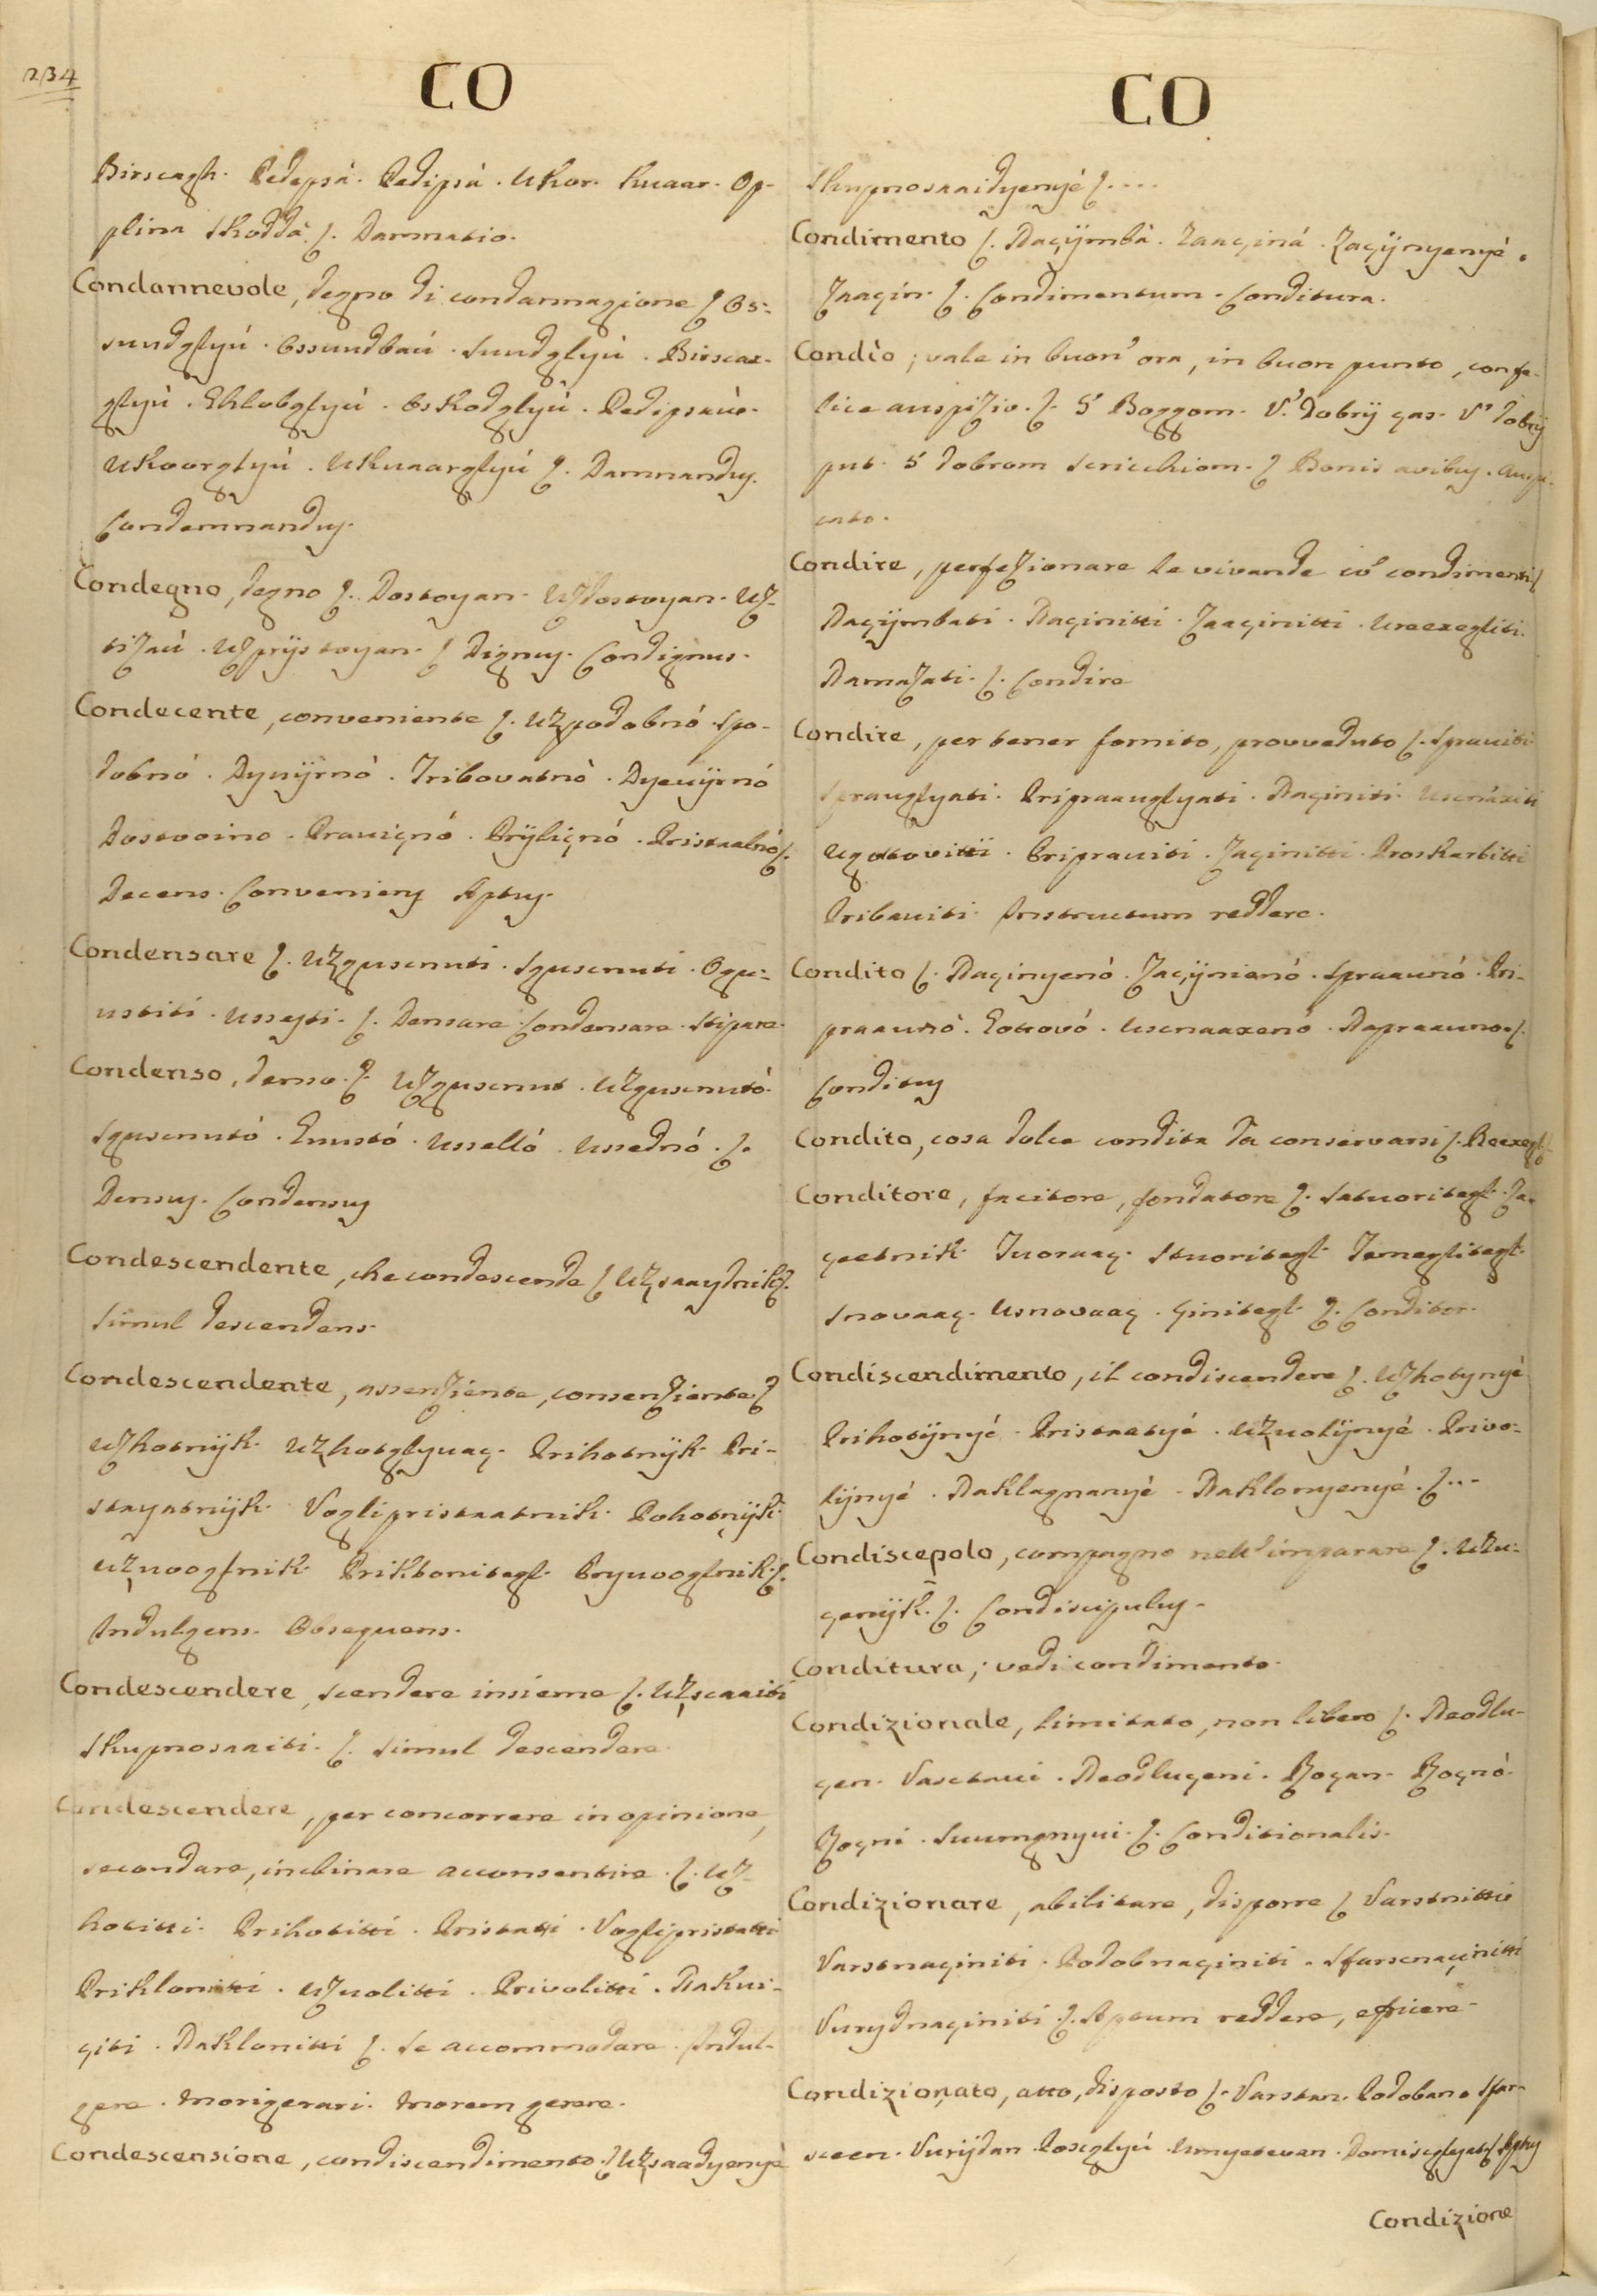 234
CO
Birscagh. Pedepsà. Pedipsà. Ukor. Kuaar. Op-
plina Skoddà. ſ. Damnatio.
Condannevole, degno di condannazione ſ Os-
sundglyú. Ossundbaú. Sundglyú. Birscaz-
glyú. Ehlobglyú. Oskodglyú. Pedipsaùo.
Ukoorglyú. Ukuaarglyú ſ. Damnanduy.
Condemnanduy.
Condegno, degno ſ. Dostoyan. Uzdostoyan. Uz-
tizaú. Uzprijstoyan. ſ Dignuy. Condignus.
Condecente, conveniente ſ. Uzpodobnó. Spo-
dobnó. Dyuijrnó. Tribovatnò. Dyeuijrnó
Dostoino. Prauiçnó. Prijliçnó. Pristaalnó ſ.
Decens. Convenieny Aptuy.
Condensare ſ. Uzguscnuti. Sguscnuti. Ogu-
ustiti. Ussesti. ſ. Densare Condensare. Stipare.
Condenso, denso. ſ. Uzguscnut. Uzguscnutó.
Sguscnutó. Guustó. Usselló. Ussednó. ſ.
Densuy. Condensuy
Condescendente, che condescende ſ Uzsaaydnik ſ.
Simul descendens.
Condescendente, assenziente, consenziente ſ
Uzhotnijk. Uzhotglyuaç. Prihotnijk. Pri-
stayatnijk. Voglipristaatnik. Pohotnijk.
Uzuooglnik. Priklonitegl. Pryuooglnik. ſ.
Indulgens. Obsequens.
Condescendere, scendere insieme ſ. Uzscaaiti
Skupnosaaiti. ſ. Simul descendere.
Condescendere, per concorrere in opinione,
secondare, inclinare acconsentire. ſ. Uz-
hotitti. Prihotitti. Pristatti. Voglipristatti
Priklonitti. Uzuolitti. Privolitti. Nakui-
çiti. Naklonitti ſ. Se accommodare. Indul-
gere. Morigerari. Morem gerere.
Condescensione, condiscendimento. ſ Uzsaadyenyè
CO
Skupnosaaidyenyé ſ....
Condimento ſ. Naçijmbà. Zaaçiná. Zaçijnyenyè.
Zaaçin. ſ. Condimentum. Conditura.
Condìo; vale in buon' ora, in buon punto, con fe-
lice auspizio. ſ. S' Boggom. V' Dobrij ças. V' dobrij
put. S' dobrom sricchiom. ſ Bonis avibuy. Auspi-
cato.
Condire, perfezionare le vivande co' condimenti ſ
Naçijmbati. Naçinitti. Zaaçinitti. Ureexegliti.
Namazati. ſ. Condire
Condire, per tener fornito, provveduto ſ. Sprauiti.
Sprauglyati. Pripraauglyati. Naçiniti. Uscnáxiti
Ugotovitti. Priprauiti. Zaçinitti. Proskarbitti
Pribauiti. Instructum reddere.
Condito ſ. Naçinyenò. Zaçijnienó. Spraaunó. Pri-
praaunò. Gotovó. Uscnaaxenó. Napraaunó. ſ.
Condituy
Condito, cosa dolce condita da conservarsi ſ. Reexegl.
Conditore, facitore, fondatore ſ. Satuoritegl. Za-
çeetnik. Tuoraaç. Stuoritegl. Temeglitegl.
Snovaaç. Usnovaaç. Çinitegl. ſ. Conditor.
Condiscendimento, il condiscendere ſ. Uzhotynyè
Prihotijnyé. Pristaatyé. Uzuolijnyé. Privo-
lijnyé. Naklagnanyè. Naklonyenyé. ſ...
Condiscepolo, compagno nell' imparare ſ. Uzu-
çenijk. ſ. Condiscipuluy.
Conditura; vedi condimento.
Condizionale, limitato, non libero ſ. Neodlu-
çen. Vasctaui. Neodluçeni. Zoçan. Zoçnò.
Zoçni. Suumgnyui. ſ. Conditionalis.
Condizionare, abilitare, disporre ſ Varstnitti
Varstnaçiniti. Podobnaçiniti. Sfarscnaçinitti
Vurydnaçiniti. ſ. Aptum reddere, efficere.
Condizionato, atto, disposto ſ. Varstan. Podoban. Sfar-
sceen. Vurijdan. Posçglyú. Umyetevan. Domisçglyat ſ Aptuy
Condizione